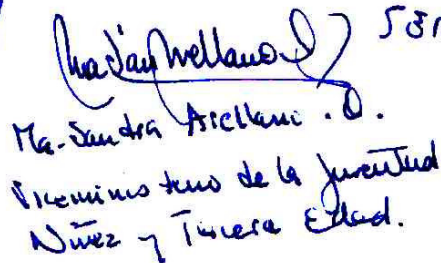 581
Ma. Sandra Arellano. O.
Viceministerio de la Juventud
Niñez y Tercera Edad.